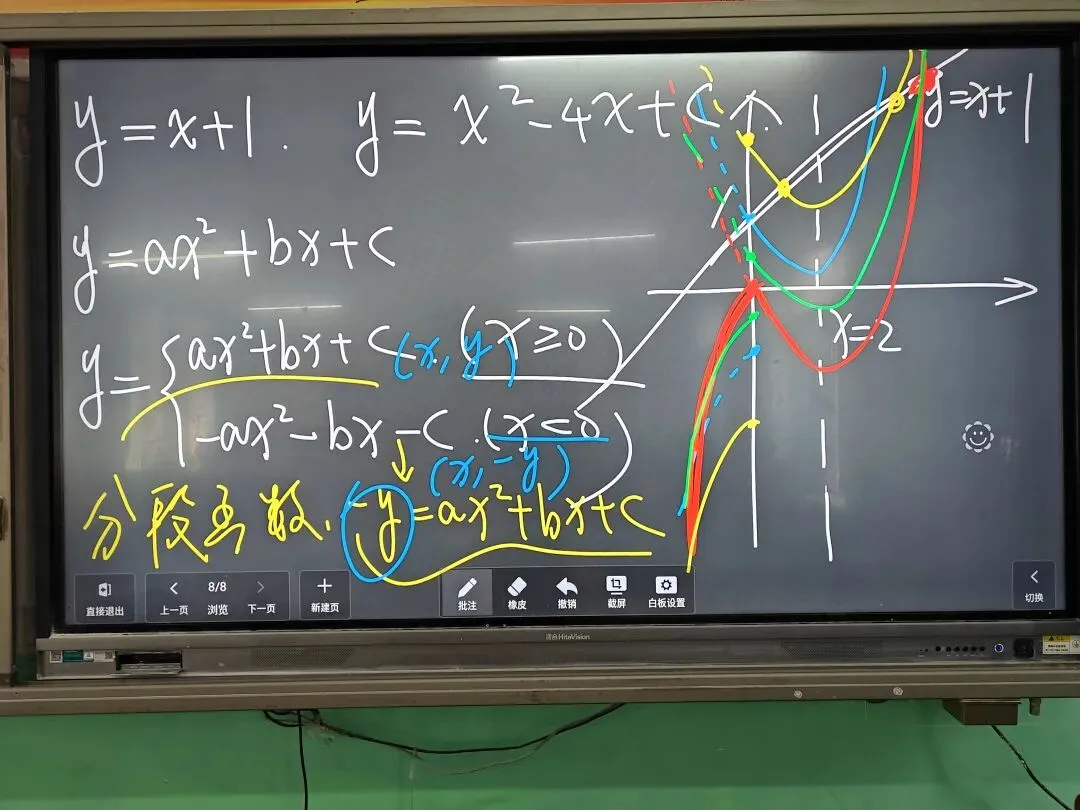 y=x+1. y=x²-4x+c
y=x+1
y=ax²+bx+c
y={ax²+bx+c (x,y) (x≥0)
-ax²-bx-c.(x<0)
x=2
(x,-y)
分段函数. -y=ax²+bx+c
直接退出
上一页
8/8
浏览
下一页
新建页
批注
橡皮
撤销
截屏
白板设置
切换
HiteVision